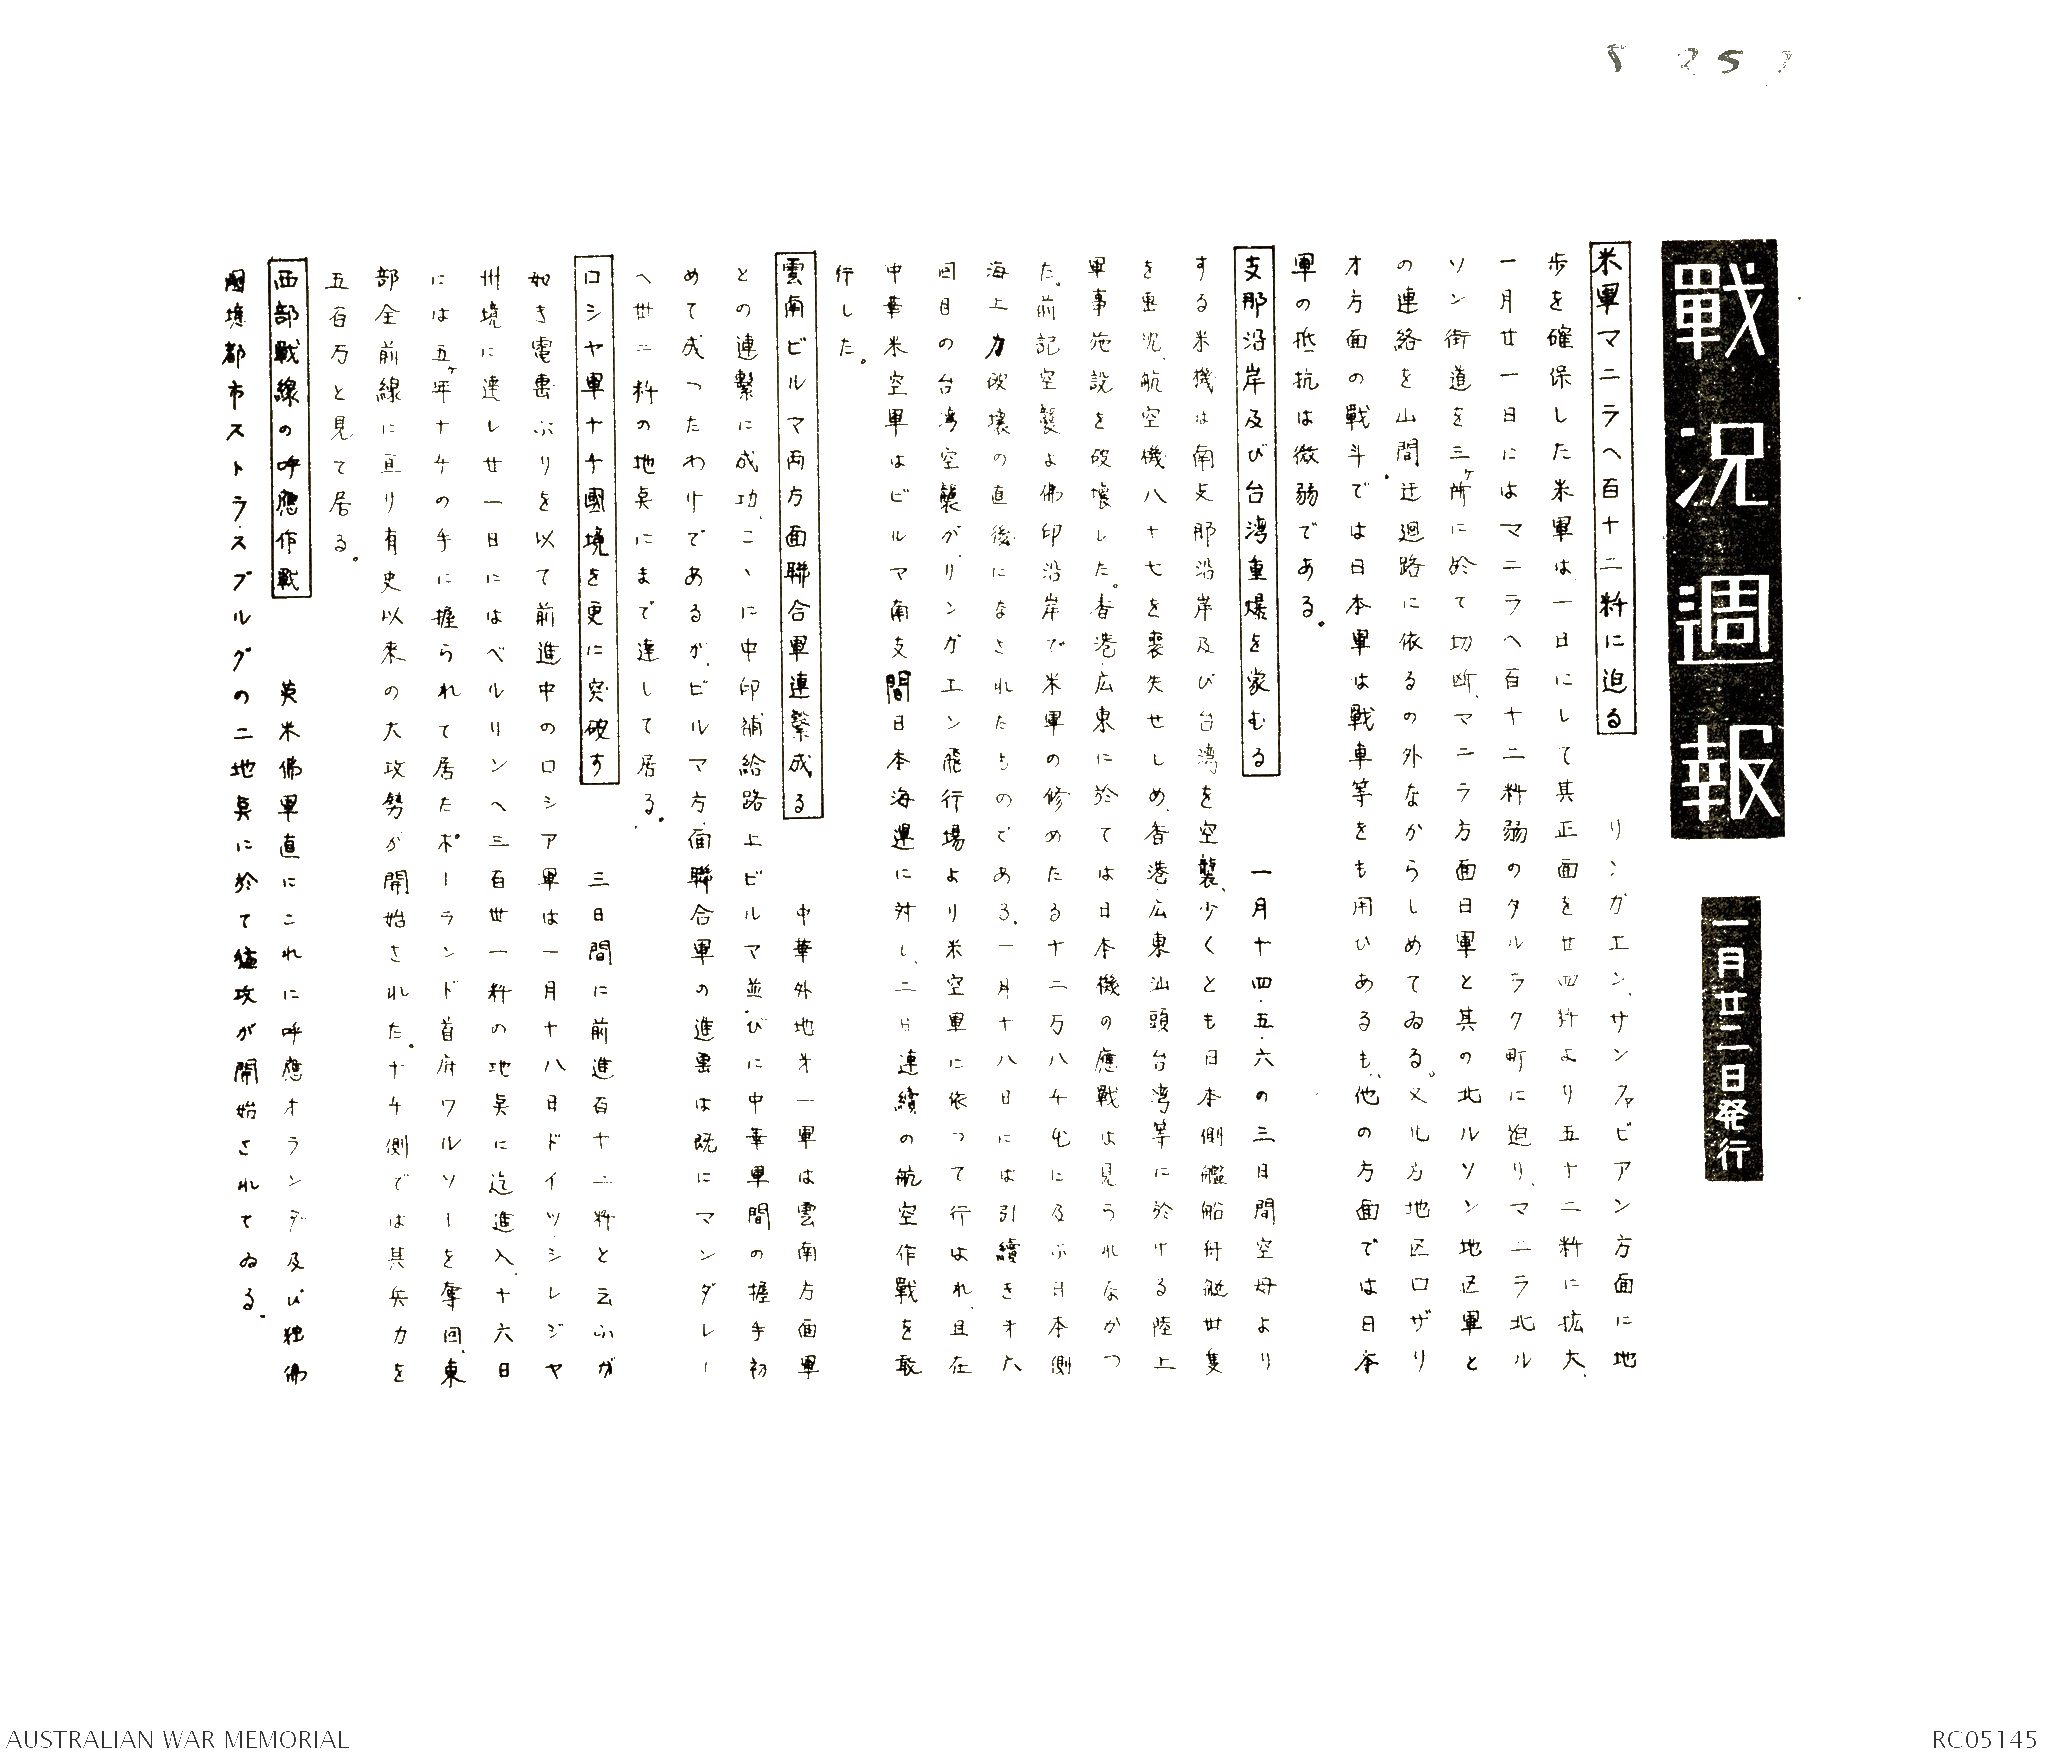 戰況週報
一月廿二日発行
米軍マニラへ百十二粁に迫る
リンガエン、サンファビアン方面に地
歩を確保した米軍は、一日にして其正面を廿四粁より五十二粁に拡大、
一月廿一日にはマニラへ百十二粁弱のタルラク町に迫り、マニラ北ル
ソン街道を三ヶ所に於て切断、マニラ方面日軍と其の北ルソン地区軍と
の連絡を山間迂廻路に依るの外なからしめてゐる。又北方地区ロザリ
オ方面の戰斗では日本軍は戰車等をも用ひあるも、他の方面では日本
軍の抵抗は微弱である。
支那沿岸及び台湾重爆を蒙むる
一月十四・五・六の三日間空母より
する米機は南支那沿岸及び台湾を空襲、少くとも日本側艦船舟艇廿隻
を撃沈、航空機八十七を喪失せしめ、香港広東汕頭台湾等に於ける陸上
軍事施設を破壊した。香港、広東に於ては日本機の應戰は見られなかつ
た。前記空襲は佛印沿岸で米軍の修めたる十二万八千屯に及ぶ日本側
海上力破壊の直後になされたものである。一月十八日には引續きオ六
回目の台湾空襲がリンガエン飛行場より米空軍に依つて行はれ、且在
中華米空軍はビルマ南支間日本海運に対し、二日連續の航空作戰を敢
行した。
雲南ビルマ両方面聯合軍連繋成る
中華外地オ一軍は雲南方面軍
との連繋に成功、こゝに中印補給路上ビルマ並びに中華軍間の握手初
めて成つたわけであるが、ビルマ方面聯合軍の進出は既にマンダレー
へ廿二粁の地点にまで達して居る。
ロシヤ軍ナチ國境を更に突破す
三日間に前進百十二粁と云ふが
如き電撃ぶりを以て前進中のロシア軍は一月十八日ドイツ、シレジヤ
州境に達し廿一日にはベルリンへ三百廿一粁の地点に迄進入、十六日
には五ヶ年ナチの手に握られて居たポーランド首府ワルソーを奪回、東
部全前線に亘り有史以来の大攻勢が開始された。ナチ側では其兵力を
五百万と見て居る。
西部戰線の呼應作戰
英米佛軍直にこれに呼應オランダ及び独佛
國境都市ストラスブルグの二地点に於て猛攻が開始されてゐる。
AUSTRALIAN WAR MEMORIAL
RC05145